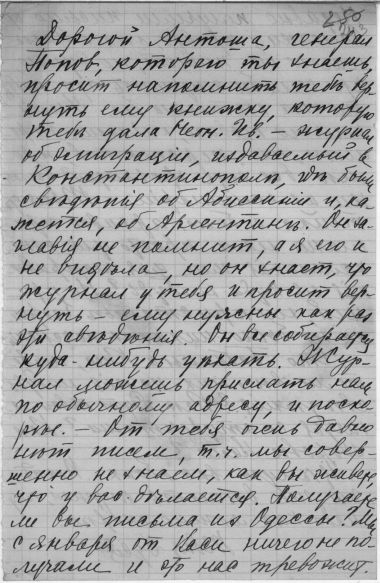 250
Дорогой Антоша, генерал
Попов, которого ты знаешь,
просит напомнить тебѣ вер-
нуть ему книжку, которую
тебѣ дала Леон. Ив. – журнал
об эмиграціи, издаваемый в
Константинополѣ, гдѣ были
свѣдѣнія об Абиссиніи и, ка-
жется, об Аргентинѣ. Он за-
главія не помнит, а я его и
не видѣла, но он знает, что
журнал у тебя и просит вер-
нуть – ему нужны как раз
эти свѣдѣнія. Он все собирается
куда-нибудь уѣхать. Жур-
нал можешь прислать нам
по обычному адресу, и поско-
рѣе. – От тебя очень давно
нѣт писем, т.ч. мы совер-
шенно не знаем, как вы живете,
что у вас дѣлается. Получаете
ли вы письма из Одессы? Мы
с января от Каси ничего не по-
лучали и это нас тревожит.